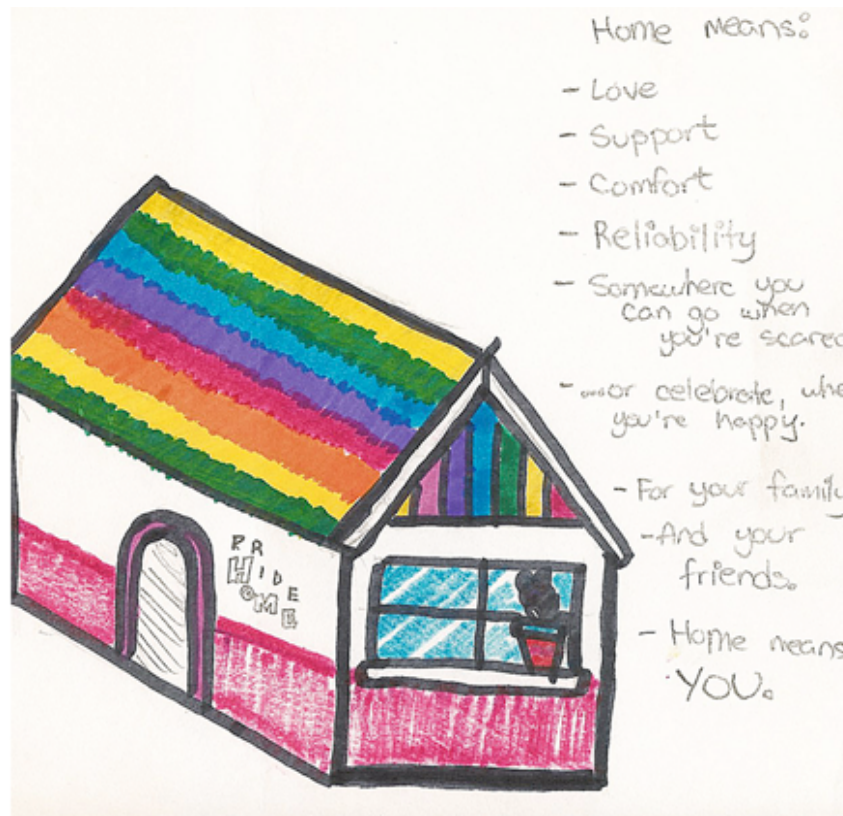 Home means:
- Love
- Support
- Comfort
- Reliability
- Somewhere you
can go when
you're scared
- ...or celebrate, whe
you're happy.
- For your family
- And your
friends.
- Home means
YOU.
PR
HIDE
OME